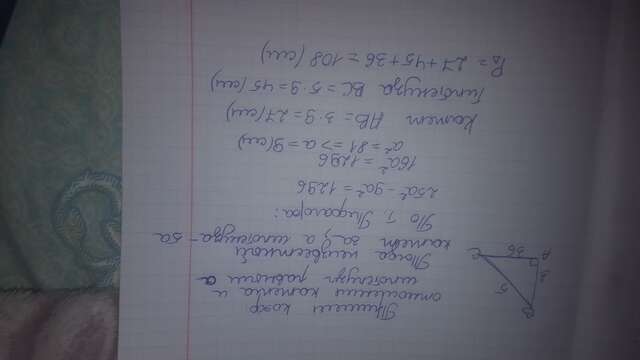 Примем коэф
отношения катета и
гипотенузы равным а
Тогда неизвестный
катет 3а, а гипотенуза - 5а
По т. Пифагора:
25a² - 9a² = 1296
16a² = 1296
a² = 81 => a = 9(см)
Катет AB = 3·9 = 27(см)
Гипотенуза BC = 5·9 = 45(см)
P△ = 27 + 45 + 36 = 108 (см)
B
3
5
A
36
C